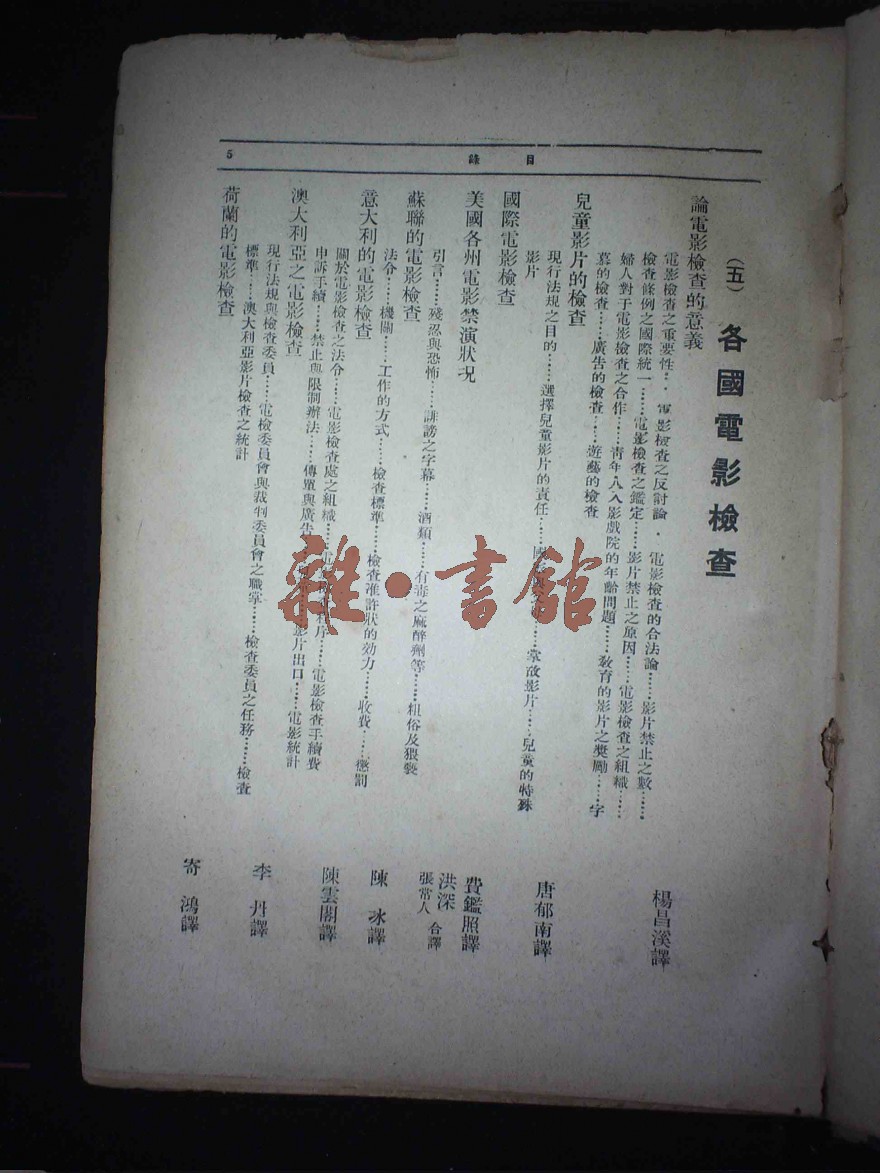 目錄
5
(五) 各國電影檢查
論電影檢查的意義
楊昌溪譯
電影檢查之重要性……電影檢查之反討論……電影檢查的合法論……影片禁止之數……
檢查條例之國際統一……電影檢查之鑑定……影片禁止之原因……電影檢查之組織……
婦人對于電影檢查之合作……青年人入影戲院的年齡問題……教育的影片之獎勵……字
幕的檢查……廣告的檢查……遊藝的檢查
兒童影片的檢查
唐郁南譯
現行法規之目的……選擇兒童影片的責任……國……掌故影片……兒童的特殊
影片
國際電影檢查
費鑑照譯
美國各州電影禁演狀况
洪深
張常人 合譯
引言……殘忍與恐怖……誹謗之字幕……酒類……有毒之麻醉劑等……粗俗及猥褻
蘇聯的電影檢查
陳冰譯
法令……機關……工作的方式……檢查標準……檢查准許狀的効力……收費……懲罰
意大利的電影檢查
陳雲閣譯
關於電影檢查之法令……電影檢查處之組織……電影檢查手續費
申訴手續……禁止與限制辦法……傳單與廣告……影片出口……電影統計
澳大利亞之電影檢查
李丹譯
現行法規與檢查委員……電檢委員會與裁判委員會之職掌……檢查委員之任務……檢查
標準……澳大利亞影片檢查之統計
荷蘭的電影檢查
寄鴻譯
雜·書館